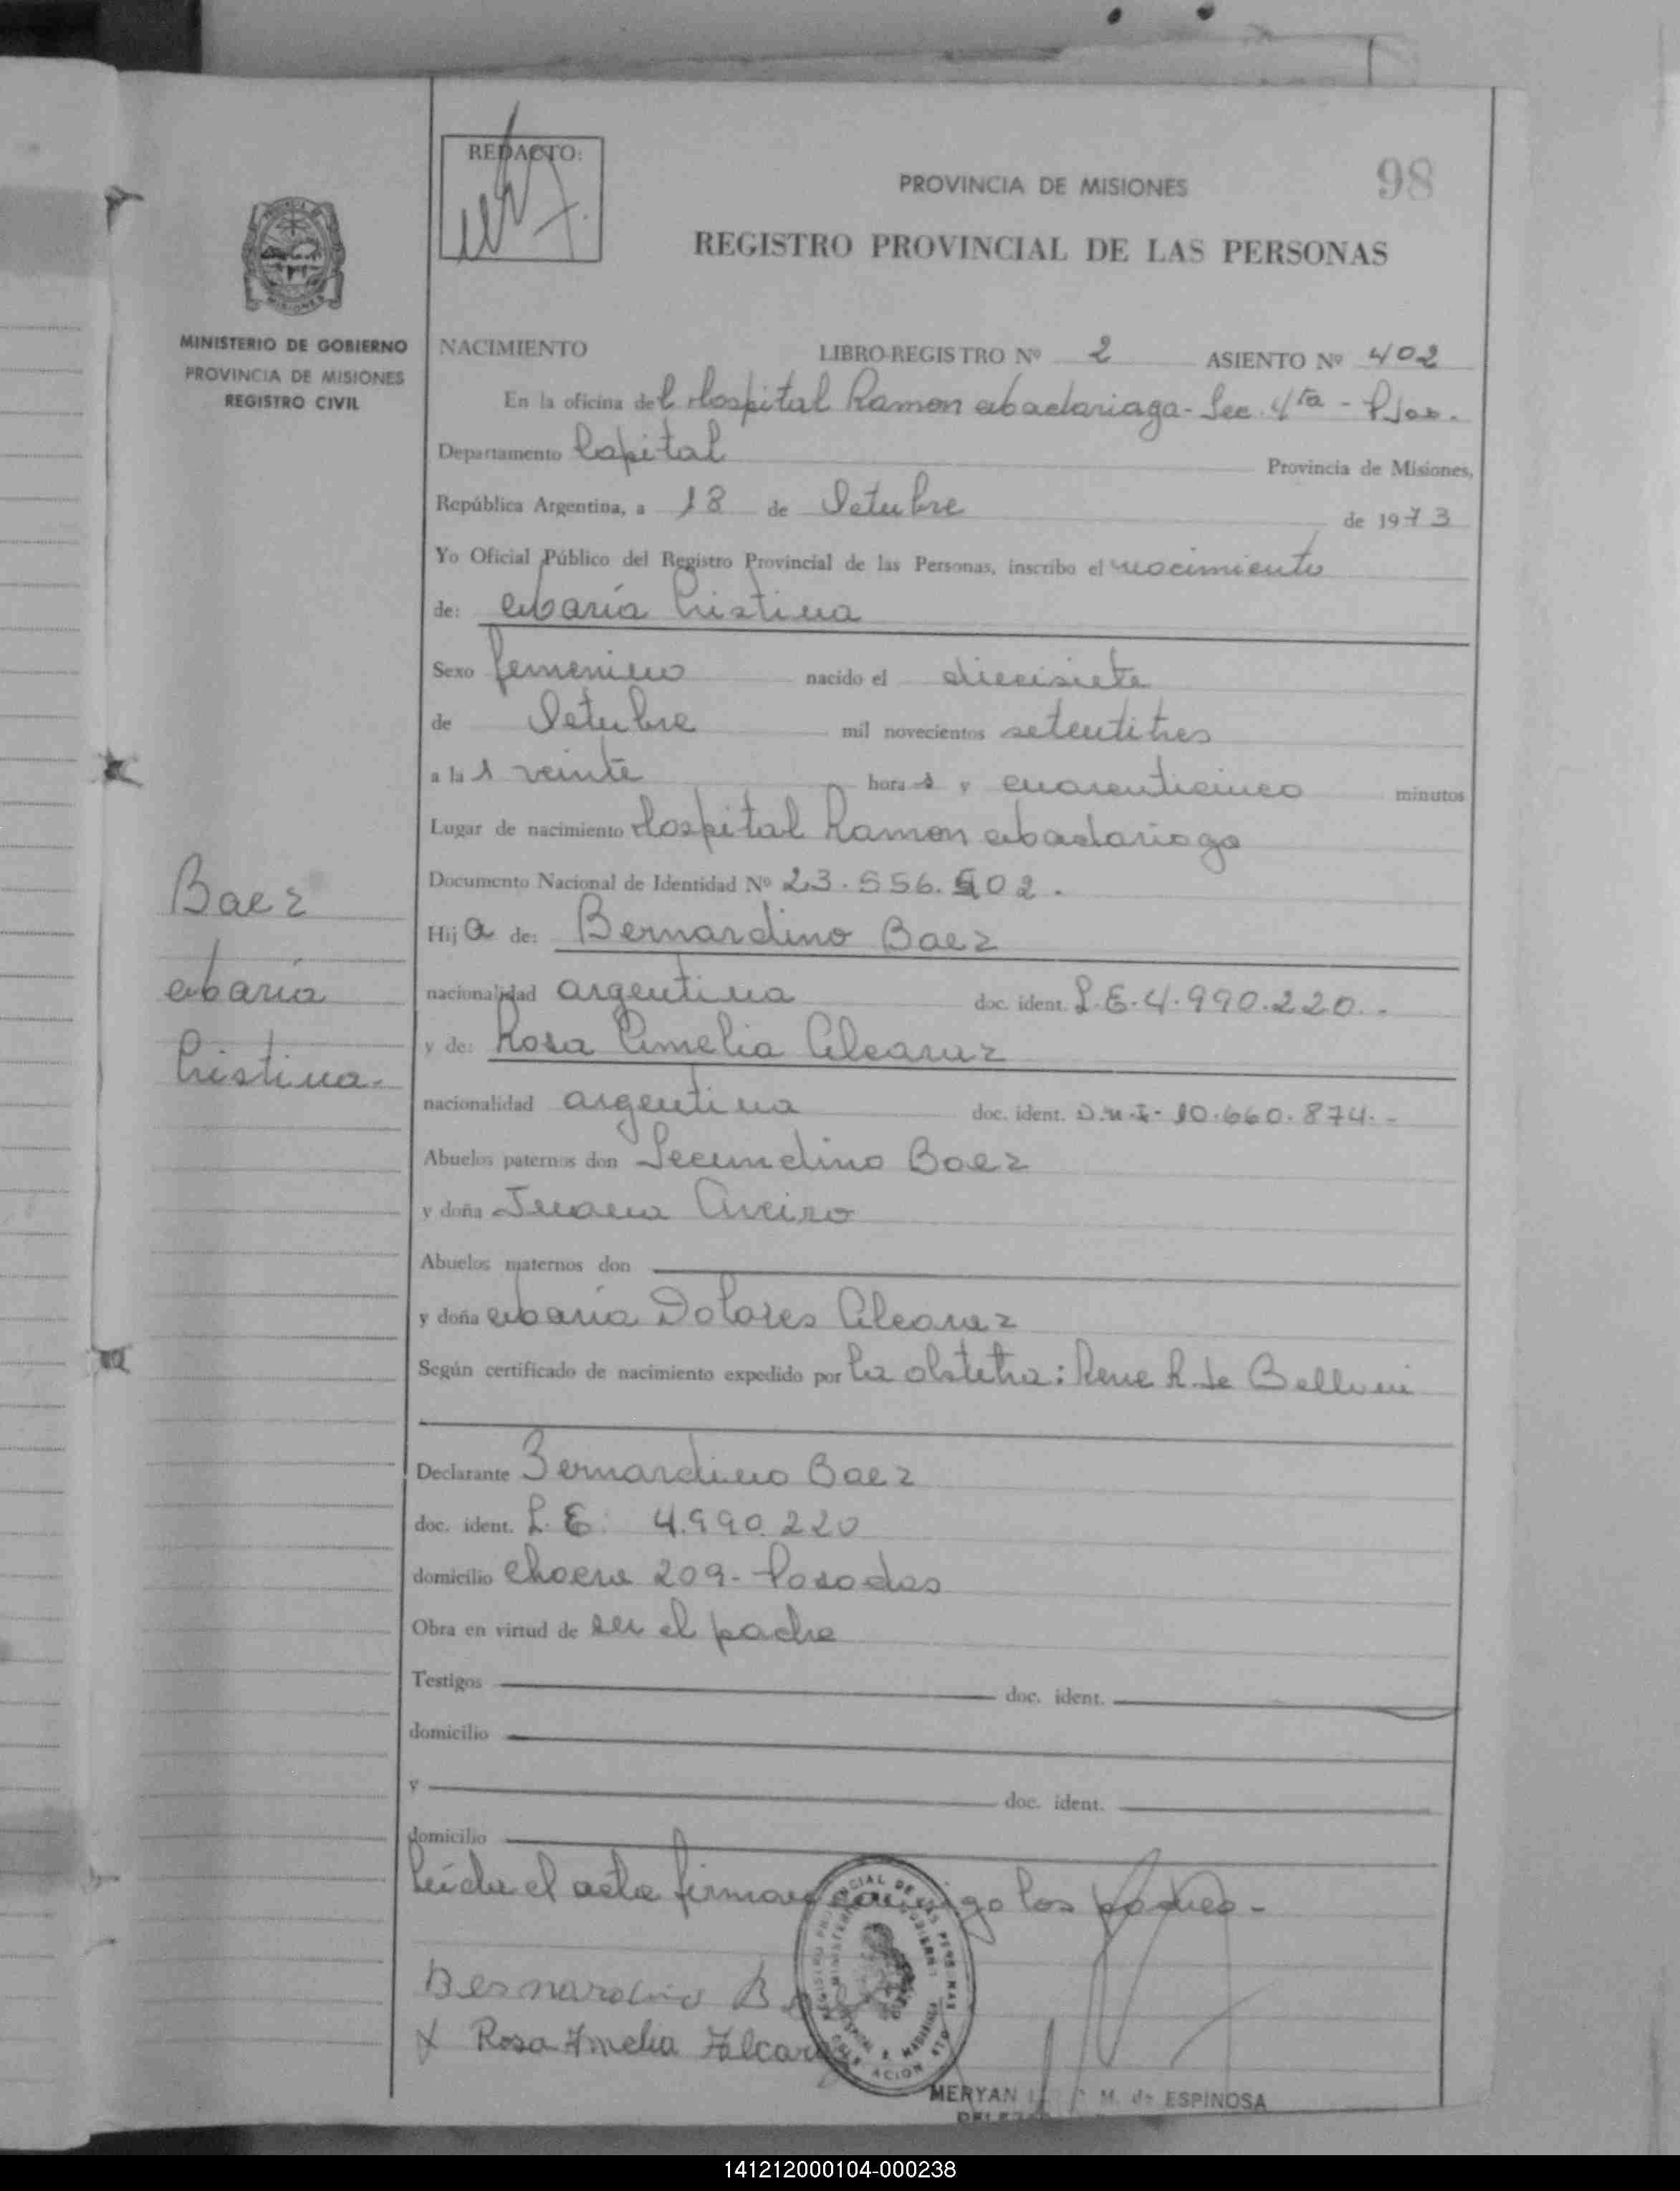 REDACTO:
PROVINCIA DE MISIONES
98
REGISTRO PROVINCIAL DE LAS PERSONAS
MINISTERIO DE GOBIERNO
PROVINCIA DE MISIONES
REGISTRO CIVIL
NACIMIENTO LIBRO-REGISTRO Nº 2 ASIENTO Nº 402
En la oficina del Hospital Ramon Madariaga - Sec. 4ta - Pdas.
Departamento Capital Provincia de Misiones,
República Argentina, a 18 de Octubre de 1973
Yo Oficial Público del Registro Provincial de las Personas, inscribo el nacimiento
de: María Cristina
Sexo femenino nacido el diecisiete
de Octubre mil novecientos setentitres
a las veinte horas y cuarenticinco minutos
Lugar de nacimiento Hospital Ramon Madariaga
Documento Nacional de Identidad Nº 23.556.502.
Hija de: Bernardino Baez
nacionalidad argentina doc. ident. L.E. 4.990.220.-
y de: Rosa Amelia Alcaraz
nacionalidad argentina doc. ident. D.N.I- 10.660.874.-
Abuelos paternos don Secundino Baez
y doña Juana Aveiro
Abuelos maternos don
y doña María Dolores Alcaraz
Según certificado de nacimiento expedido por la obstetra: Rene R. de Belloni
Baez
María
Cristina.
Declarante Bernardino Baez
doc. ident. L.E. 4.990.220
domicilio 209 - Posadas
Obra en virtud de ser el padre
Testigos doc. ident.
domicilio
y doc. ident.
domicilio
Leída el acta firman conmigo los padres.-
Bernardino B
x Rosa Amelia Alcaraz
MERYAN M. de ESPINOSA
141212000104-000238